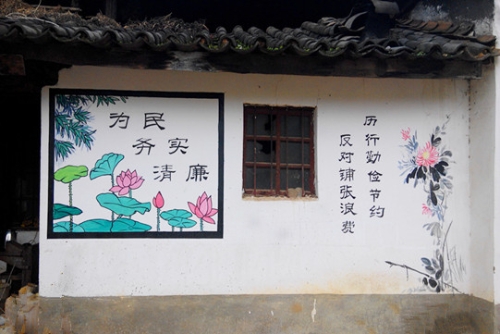 为民
务实
清廉
历行勤俭节约
反对铺张浪费